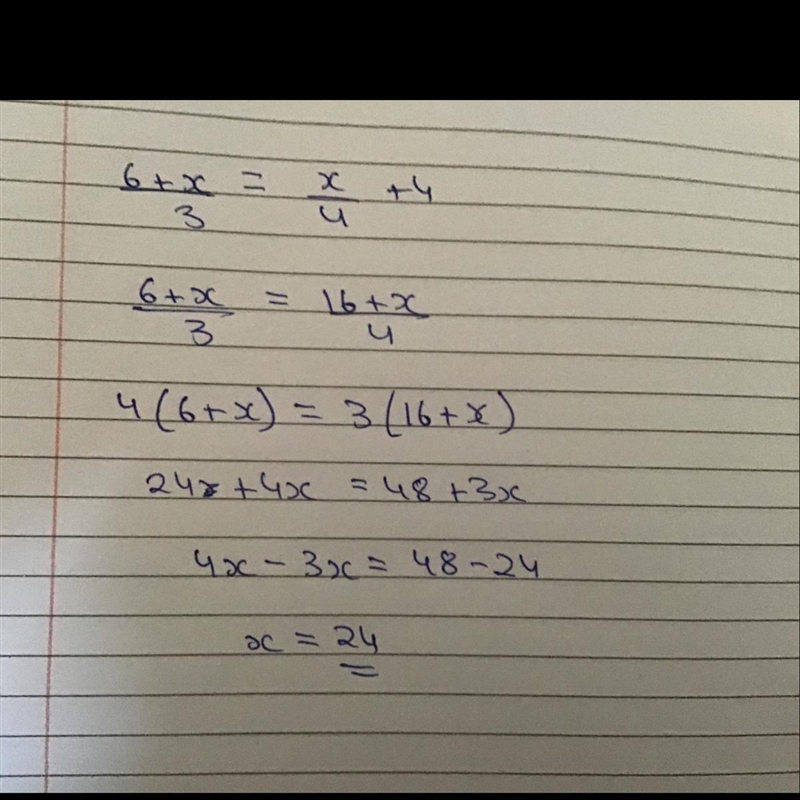 6+x/3 = x/4 +4
6+x/3 = 16+x/4
4(6+x) = 3(16+x)
24x+4x = 48+3x
4x-3x = 48-24
x = 24